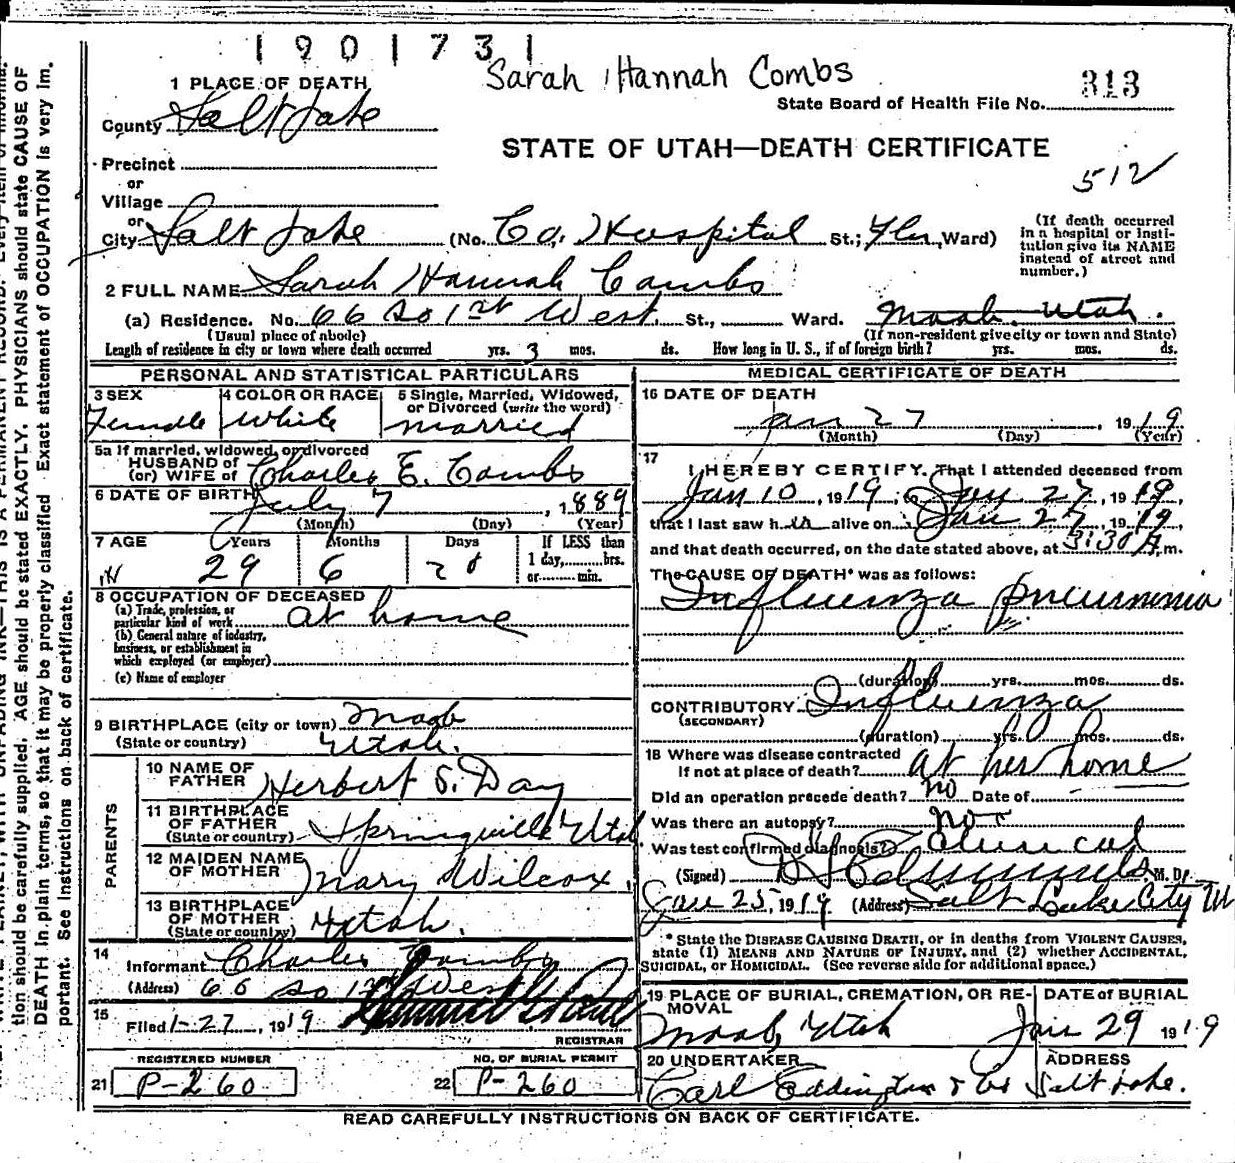 1901731
Sarah Hannah Combs
1 PLACE OF DEATH
State Board of Health File No. 313
County Salt Lake
STATE OF UTAH—DEATH CERTIFICATE
Precinct
512
or
Village
or
City Salt Lake (No. Co. Hospital St.; Ward)
(If death occurred
in a hospital or insti-
tution give its NAME
instead of street and
number.)
2 FULL NAME Sarah Hannah Combs
(a) Residence. No. 66 So 1st West St., Ward. Moab Utah.
(Usual place of abode) (If non-resident give city or town and State)
Length of residence in city or town where death occurred yrs. 3 mos. ds. How long in U. S., if of foreign birth? yrs. mos. ds.
PERSONAL AND STATISTICAL PARTICULARS
3 SEX
Female
4 COLOR OR RACE
White
5 Single, Married, Widowed,
or Divorced (write the word)
Married
5a If married, widowed, or divorced
HUSBAND of
(or) WIFE of Charles E. Combs
6 DATE OF BIRTH July 7, 1889
(Month) (Day) (Year)
7 AGE Years Months Days If LESS than
29 6 20 1 day, hrs.
or min.
8 OCCUPATION OF DECEASED
(a) Trade, profession, or
particular kind of work at home
(b) General nature of industry,
business, or establishment in
which employed (or employer)
(c) Name of employer
9 BIRTHPLACE (city or town) Moab
(State or country) Utah.
PARENTS
10 NAME OF
FATHER Herbert S. Day
11 BIRTHPLACE
OF FATHER
(State or country) Springville Utah
12 MAIDEN NAME
OF MOTHER Mary Wilcox.
13 BIRTHPLACE
OF MOTHER
(State or country) Utah.
14
Informant Charles Combs
(Address) 66 So 1st West
15
Filed 1-27, 1919
REGISTRAR
REGISTERED NUMBER
21 P-260
NO. OF BURIAL PERMIT
22 P-260
MEDICAL CERTIFICATE OF DEATH
16 DATE OF DEATH
Jan 27, 1919
(Month) (Day) (Year)
17
I HEREBY CERTIFY, That I attended deceased from
Jan 10, 1919, to Jan 27, 1919,
that I last saw h er alive on Jan 27, 1919,
and that death occurred, on the date stated above, at 3:30 A. m.
The CAUSE OF DEATH* was as follows:
Influenza pneumonia
(duration) yrs. mos. ds.
CONTRIBUTORY Influenza
(SECONDARY)
(duration) yrs. mos. ds.
18 Where was disease contracted
If not at place of death? at her home
Did an operation precede death? No Date of
Was there an autopsy? No
Was test confirmed diagnosis? Clinical
(Signed) Edmunds M. D.
Jan 25, 1919 (Address) Salt Lake City Ut
* State the DISEASE CAUSING DEATH, or in deaths from VIOLENT CAUSES,
state (1) MEANS AND NATURE OF INJURY, and (2) whether ACCIDENTAL,
SUICIDAL, or HOMICIDAL. (See reverse side for additional space.)
19 PLACE OF BURIAL, CREMATION, OR RE-
MOVAL
Moab, Utah
DATE of BURIAL
Jan 29 1919
20 UNDERTAKER
Carl Eddington & Co
ADDRESS
Salt Lake.
READ CAREFULLY INSTRUCTIONS ON BACK OF CERTIFICATE.
tion should be carefully supplied. AGE should be stated EXACTLY. PHYSICIANS should state CAUSE OF
DEATH in plain terms, so that it may be properly classified Exact statement of OCCUPATION is very im-
portant. See instructions on back of certificate.